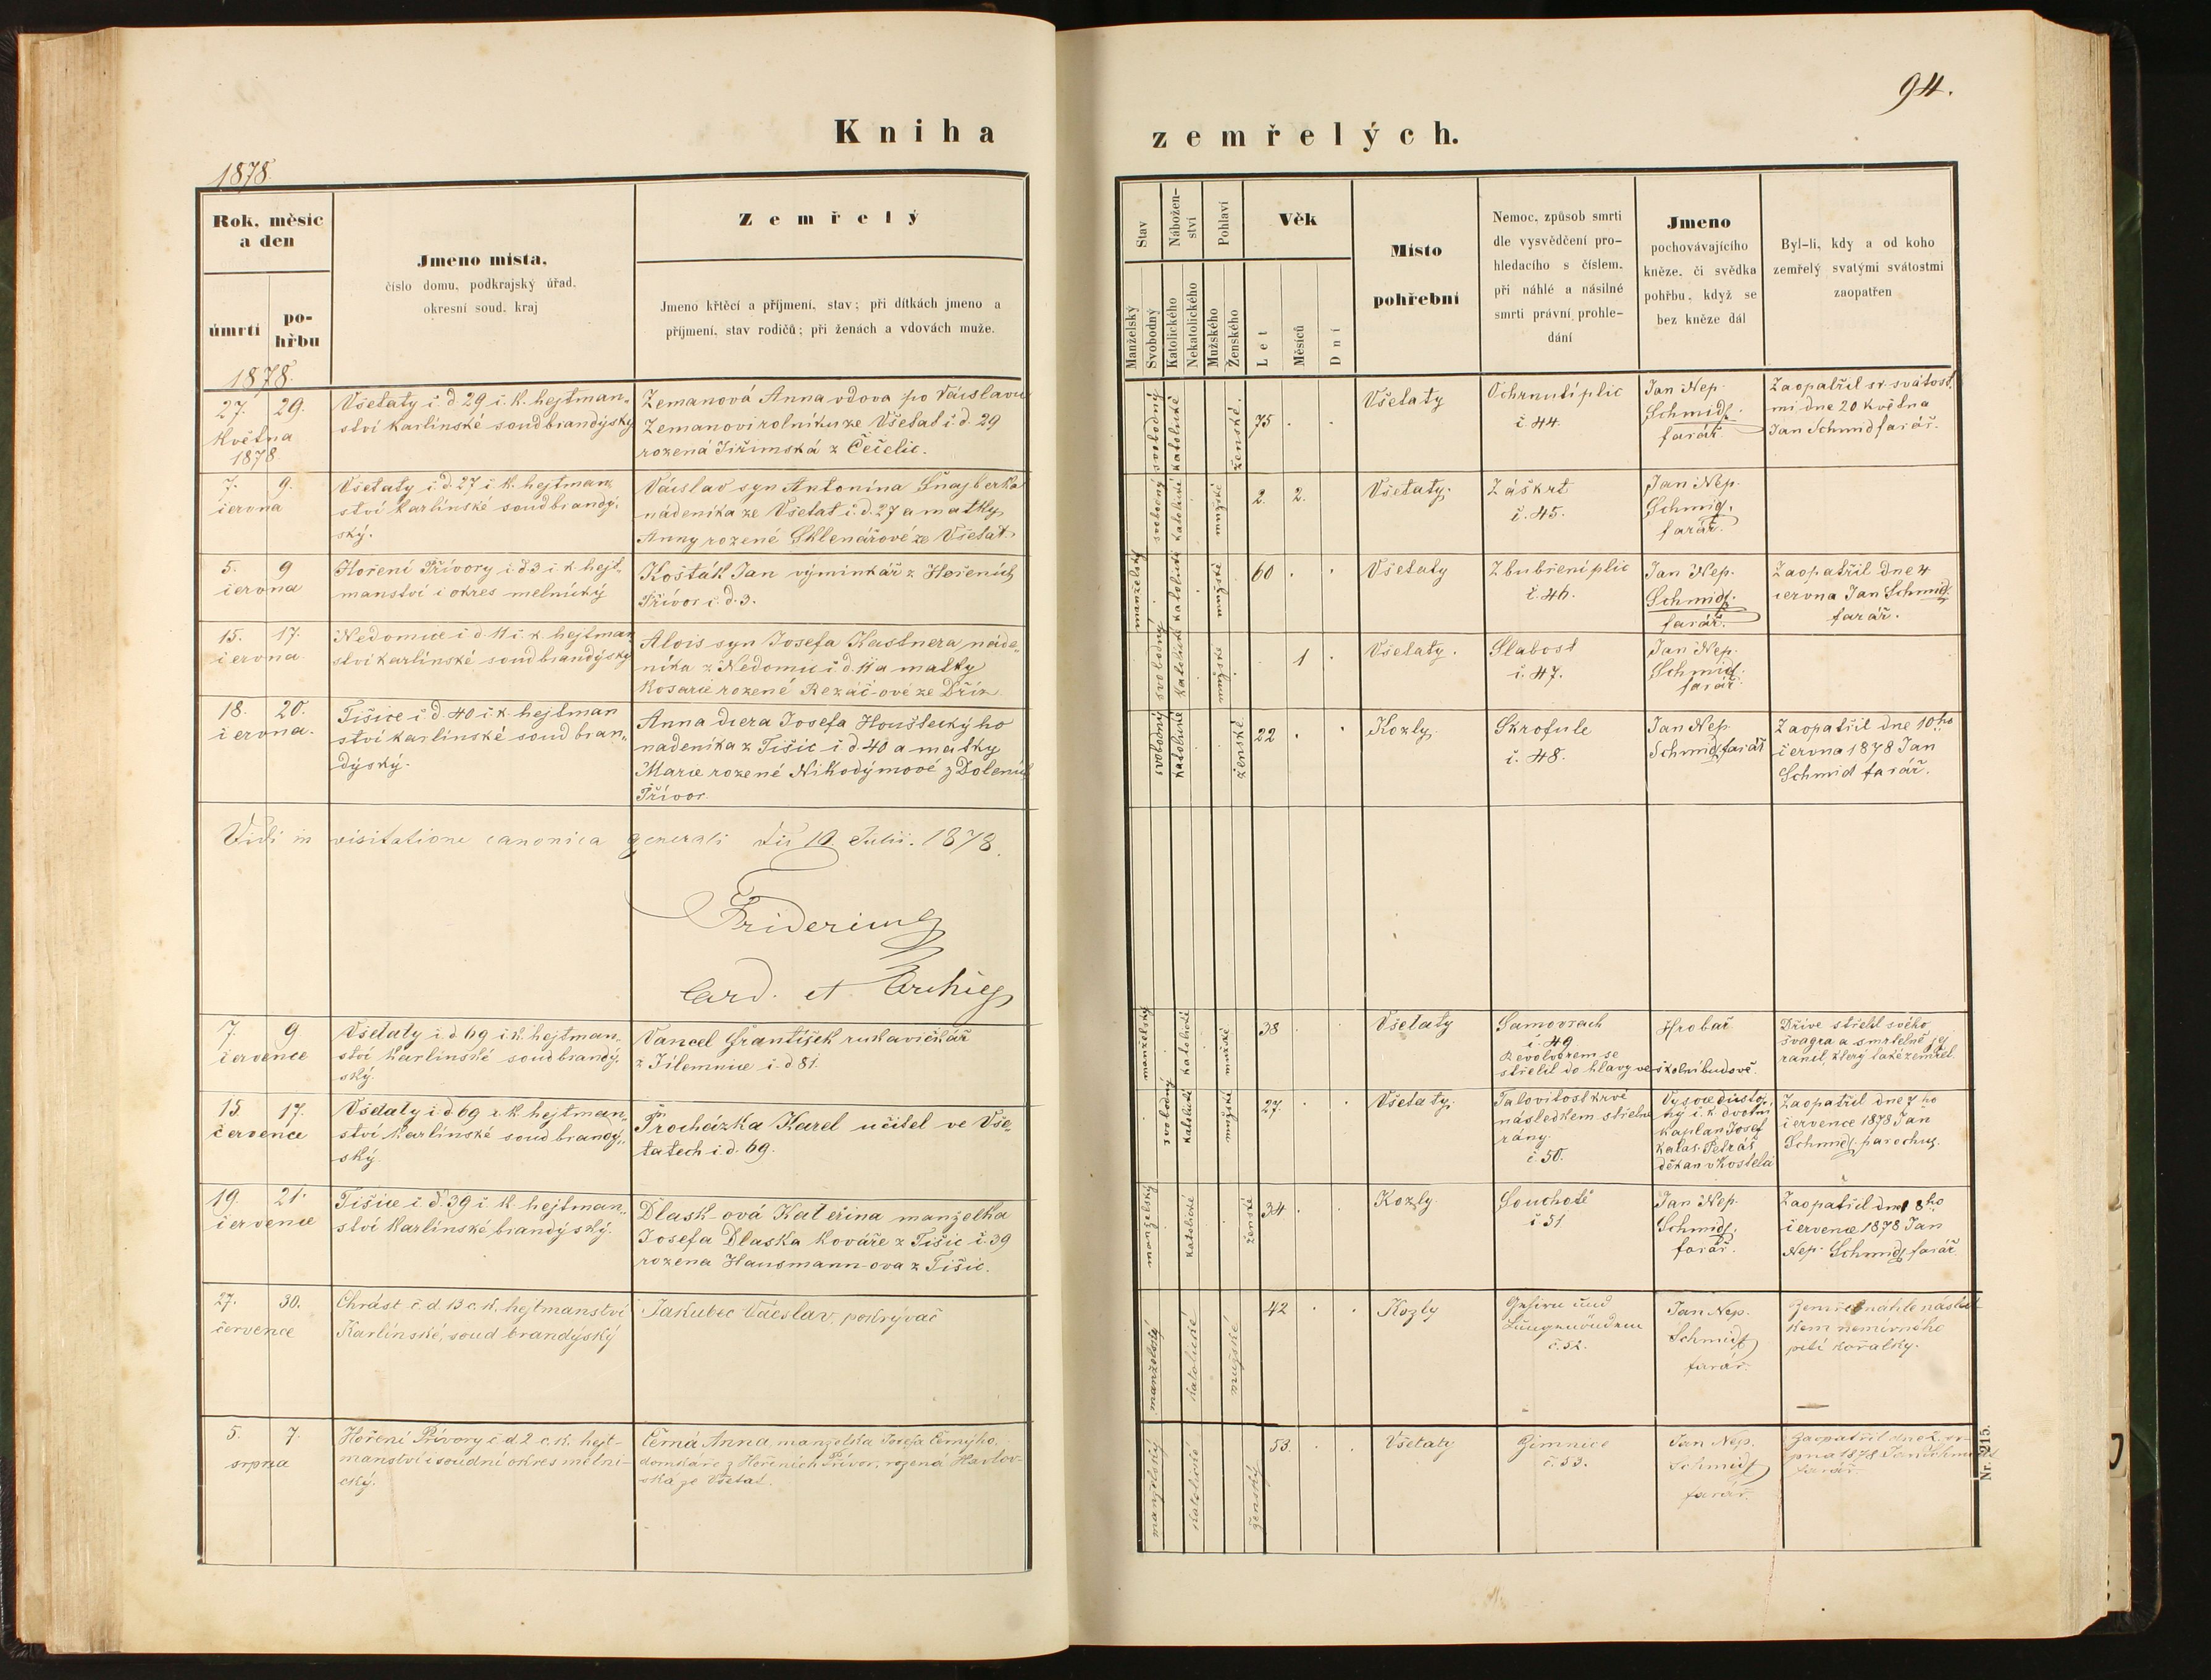 94.
Kniha zemřelých.
1878
Rok, měsíc
a den
úmrtí
po-
hřbu
Jmeno místa,
číslo domu, podkrajský úřad,
okresní soud, kraj
Zemřelý
Jmeno křtěcí a příjmení, stav; při dítkách jmeno a
příjmení, stav rodičů; při ženách a vdovách muže.
Stav
Manželský
Svobodný
Nábožen-
ství
Katolického
Nekatolického
Pohlaví
Mužského
Ženského
Věk
Let
Měsíců
Dní
Místo
pohřební
Nemoc, způsob smrti
dle vysvědčení pro-
hledacího s číslem,
při náhlé a násilné
smrti právní prohle-
dání
Jmeno
pochovávajícího
kněze, či svědka
pohřbu, když se
bez kněze dál
Byl-li, kdy a od koho
zemřelý svatými svátostmi
zaopatřen
1878.
27. 29.
Května
1878
Všetaty č. d. 29 c. k. hejtman-
ství karlínské soud brandýský
Zemanová Anna vdova po Václavu
Zemanovi rolníku ze Všetat č. d. 29
rozená Jiřimská z Čečelic.
svobodný
katolické
ženské.
75 . .
Všetaty
Ochrnutí plic
č. 44.
Jan Nep.
Schmidt
farář.
Zaopatřil sv. svátost
mi dne 20 května
Jan Schmid farář.
7. 9.
června
Všetaty č. d. 27 c. k. hejtman
ství karlínské soud brandý-
ský.
Václav syn Antonína Šnajberka
nádeníka ze Všetat č. d. 27 a matky
Anny rozené Sklenářové ze Všetat.
svobodný
katolické
mužské
2. 2.
Všetaty.
Záškrt
č. 45.
Jan Nep.
Schmid.
farář.
5. 9
června
Hoření Přívory č. d. 3 c. k. hejt-
manství i okres melnický
Košťák Jan výminkář z Hořeních
Přívor č. d. 3.
manželský
katolické
mužské
60 . .
Všetaty
Zbubření plic
č. 46.
Jan Nep.
Schmidt.
farář.
Zaopatřil dne 4
června Jan Schmid.
farář.
15. 17.
června
Nedomice č. d. 11 c. k. hejtman
ství karlínské soud brandýský
Alois syn Josefa Kastnera náde-
níka z Nedomic č. d. 11 a matky
Rosarie rozené Rezáč-ové ze Dřís
svobodný
katolické
mužské
1 .
Všetaty.
Slabost
č. 47.
Jan Nep.
Schmid.
farář.
18. 20.
června.
Tišice č. d. 40 c. k. hejtman
ství karlínské soud bran-
dýský.
Anna dcera Josefa Houšteckýho
nadeníka z Tišic č. d. 40 a matky
Marie rozené Nikodýmové z Doleních
Přívor.
svobodný
katolické
ženské
22 . .
Kozly.
Skrofule
č. 48.
Jan Nep.
Schmid farář
Zaopatřil dne 10ho
června 1878 Jan
Schmid farář.
Vidi in visitatione canonica generali die 10. Julii. 1878.
Fridericus
Card. et Archiep
7. 9
července
Všetaty č. d. 69 c. k. hejtman-
ství karlínské soud brandý-
ský.
Vancel František rukavičkář
z Jilemnice č. d. 81.
manželský
katolické
mužské
38 .
Všetaty
Samovrach
č. 49
Revolvorem se
střelil do hlavy ve školní budově.
Hrobař
Dříve střelil svého
švagra a smrtelně jej
ranil, který také zemřel.
15 17.
července
Všetaty č. d. 69 c. k. hejtman-
ství karlínské soud brandý-
ský.
Procházka Karel učitel ve Vše-
tatech č. d. 69.
svobodný
katolické
mužské
27. . .
Všetaty.
Talovitost krve
následkem střelné
rány.
č. 50.
Vysocedůstoj-
ný c. k. dvorní
kaplan Josef
Petráš
děkan v Kostelci
Zaopatřil dne 7 ho
července 1878 Jan
Schmidt parochus.
19 21.
července
Tišice č. d. 39 c. k. hejtman-
ství karlínské brandýský.
Dlask-ová Kateřina manželka
Josefa Dlaska kováře z Tišic č. 39
rozena Hausmann-ova z Tišic.
manželský
katolické
ženské
34 . .
Kozly.
Souchotě
č. 51
Jan Nep.
Schmidt.
farář.
Zaopatřil dne 8ho
července 1878 Jan
Nep. Schmidt farář
27. 30.
července
Chrást č. d. 13 c. k. hejtmanství
Karlínské, soud brandýský
Jakubec Václav, pokrývač
manželský
katolické
mužské
42 . .
Kozly
Gehirn und
č. 52.
Jan Nep.
Schmidt
farář.
Zemřel náhle násled-
kem nemírného
pití kořalky.
5. 7.
srpna
Hoření Přívory č. d. 2 c. k. hejt-
manství i soudní okres melni-
cký.
Černá Anna, manželka Josefa Černýho,
domkáře z Hořeních Přívor, rozená Havlov-
ská ze Všetat.
manželský
katolické
ženský
53. . .
Všetaty
Zimnice
č. 53.
Jan Nep.
Schmidt
farář.
Zaopatřil dne 2. sr-
pna 1878 Jan Schmidt
farář.
Nr. 215.